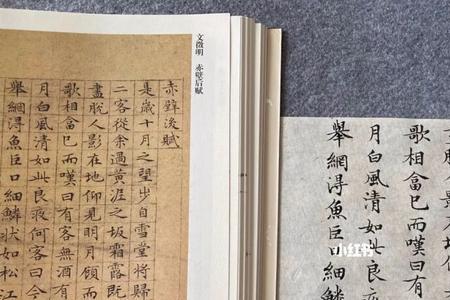 文徵明 赤壁后赋
赤壁後賦
是歲十月之望步自雪堂將歸
二客從余過黃泥之坂霜露既
盡脫人影在地仰見明月顧而
歌相畣已而嘆曰有客無酒有
月白風清如此良夜何客曰今
舉網得魚巨口細鱗狀如松江
歌相畣已而嘆曰有
月白風清如此良夜
舉網得魚巨口細鱗
小红书